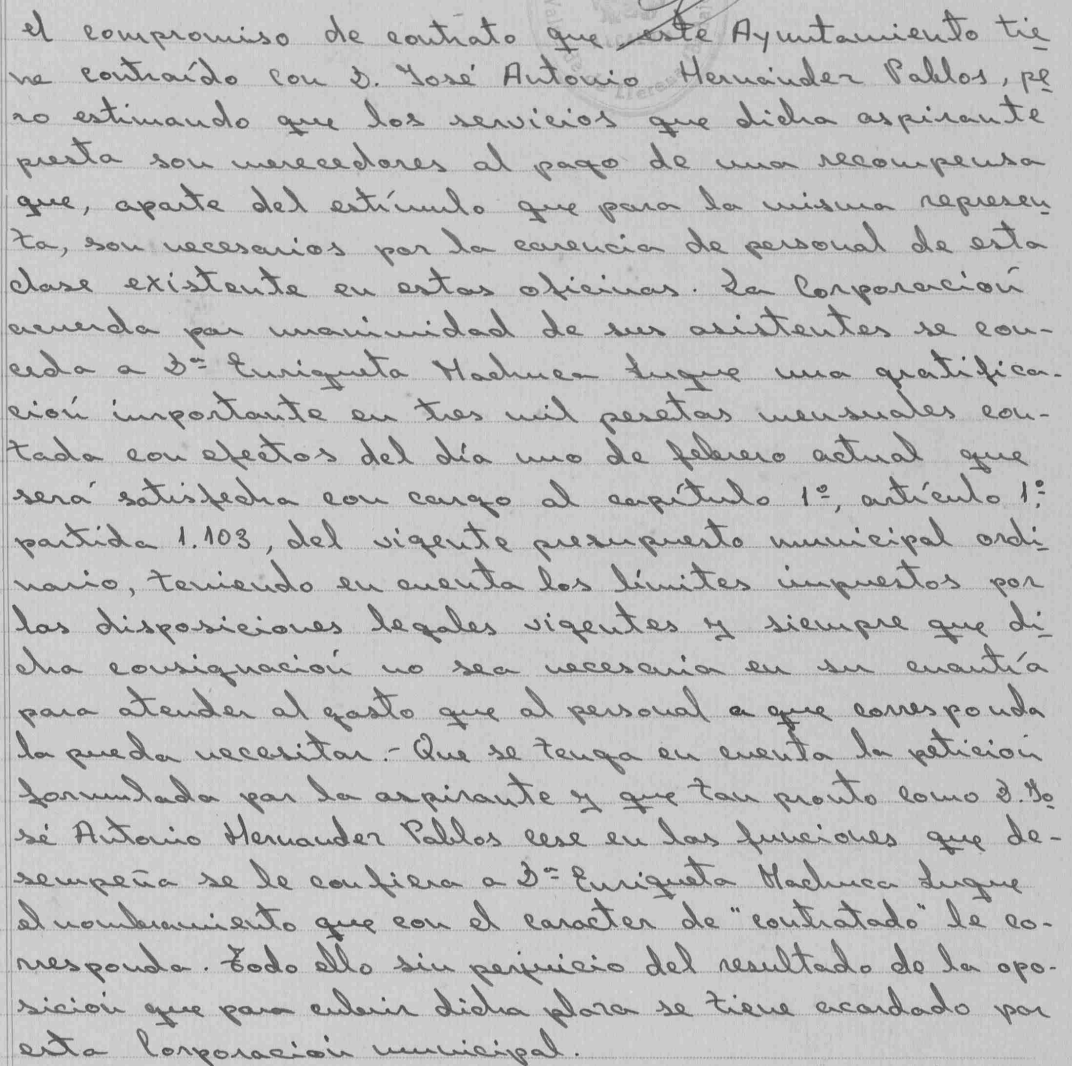 el compromiso de contrato que este Ayuntamiento tie
ne contraído con D. José Antonio Hernández Pablos, pe
ro estimando que los servicios que dicha aspirante
presta son merecedores al pago de una recompensa
que, aparte del estímulo que para la misma represen
ta, son necesarios por la carencia de personal de esta
clase existente en estas oficinas. La Corporación
acuerda por unanimidad de sus asistentes se con-
ceda a Dª Enriqueta Machuca Luque una gratifica-
ción importante en tres mil pesetas mensuales con-
tada con efectos del día uno de febrero actual que
será satisfecha con cargo al capítulo 1º, artículo 1º
partida 1.103, del vigente presupuesto municipal ordi
nario, teniendo en cuenta los límites impuestos por
las disposiciones legales vigentes y siempre que di
cha consignación no sea necesaria en su cuantía
para atender al gasto que al personal a que corresponda
la pueda necesitar.- Que se tenga en cuenta la petición
formulada por la aspirante y que tan pronto como D. Jo
sé Antonio Hernandez Pablos cese en las funciones que de-
sempeña se le confiera a Dª Enriqueta Machuca Luque
el nombramiento que con el caracter de "contratado" le co-
rresponda. Todo ello sin perjuicio del resultado de la opo-
sición que para cubrir dicha plaza se tiene acordado por
esta Corporación municipal.